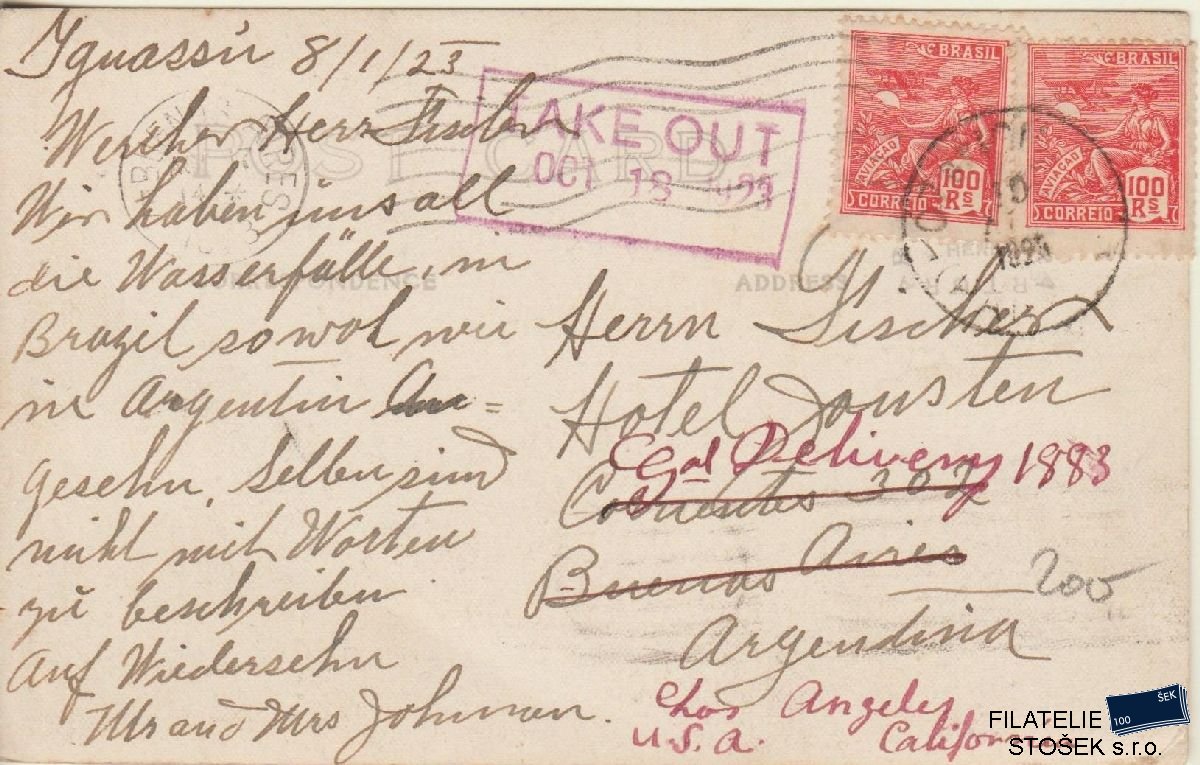 Iguassú 8/1/25
Werther Herr Fischer
Wir haben uns all
die Wasserfälle, in
Brazil sowol wie
in Argentin An=
gesehn. Selben sind
nicht mit Worten
zu beschreiben
Auf Wiedersehn
Mr and Mrs Johnson.
POST CARD
CORRESPONDENCE
ADDRESS
TAKE OUT
OCT 18 1923
BRASIL
AVIAÇÃO
100 Rs
CORREIO
BRASIL
AVIAÇÃO
100 Rs
CORREIO
Herrn Fischer
Hotel Jousten
Gal Delivery 1883
Corrientes 302
Buenos Aires
200
Argendina
Los Angeles
U.S.A. California
100 ŠEK
FILATELIE
STOŠEK s.r.o.